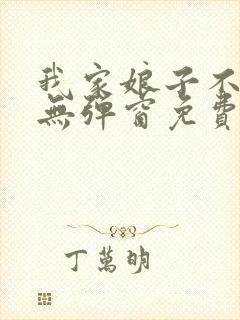 我家娘子不
無彈窗免費
丁萬明